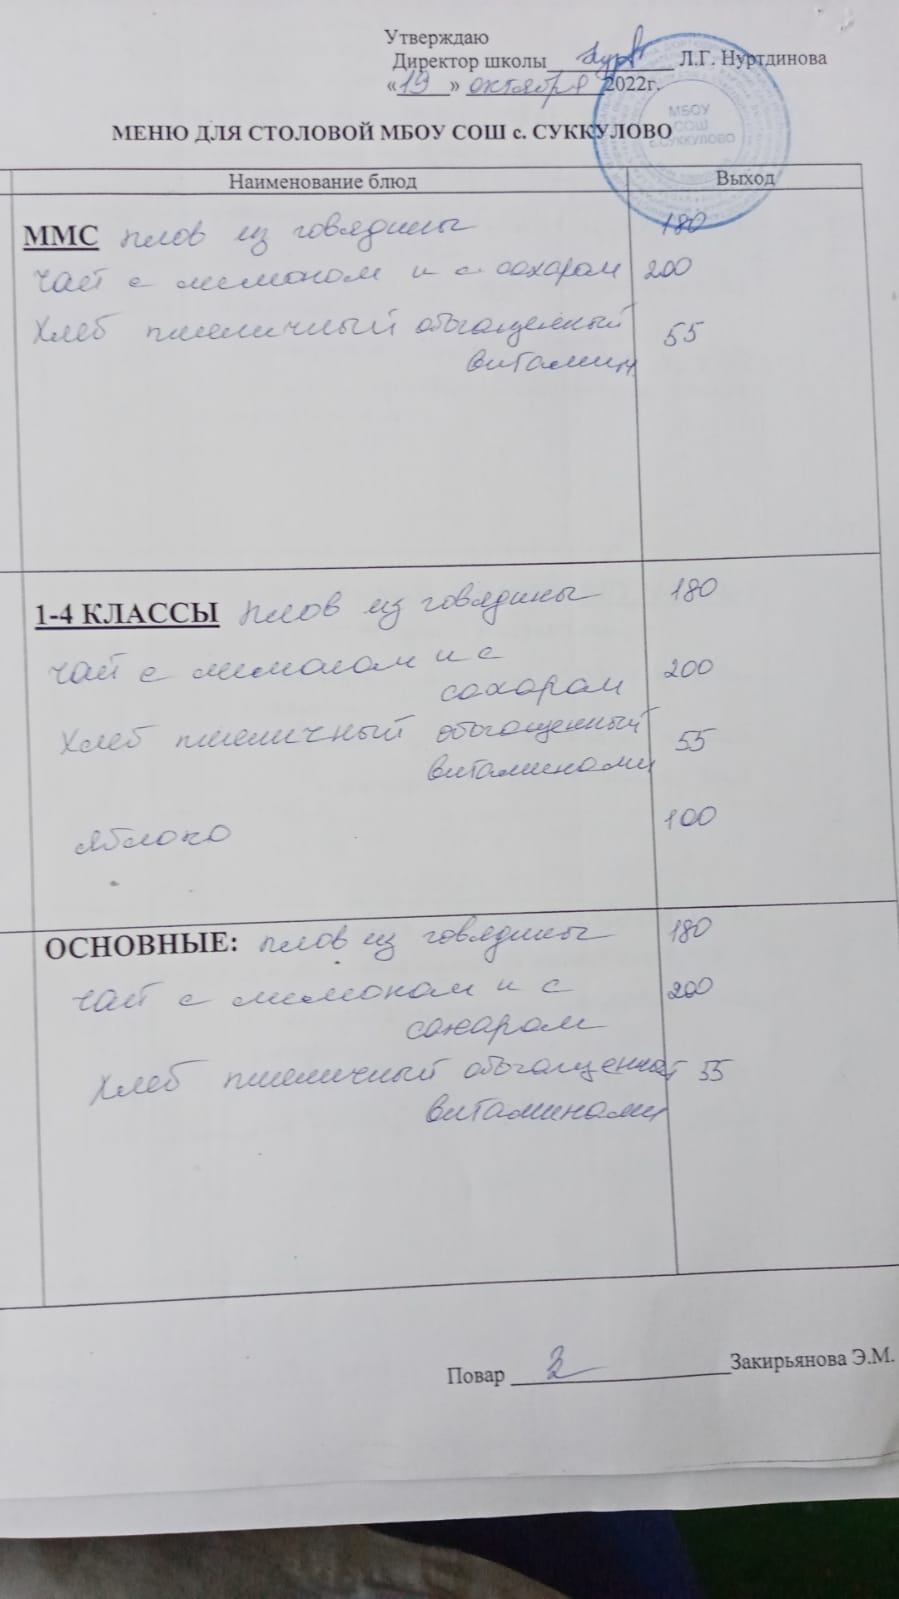 Утверждаю
Директор школы Л.Г. Нуртдинова
«19» октября 2022г.
МБОУ
СОШ
с.СУККУЛОВО
МЕНЮ ДЛЯ СТОЛОВОЙ МБОУ СОШ с. СУККУЛОВО
Наименование блюд Выход
ММС плов из говядины 180
чай с лимоном и с сахаром 200
Хлеб пшеничный обогащенный 55
витамин
1-4 КЛАССЫ плов из говядины 180
чай с лимоном и с 200
сахаром
Хлеб пшеничный обогащенный 55
витаминами
яблоко 100
ОСНОВНЫЕ: плов из говядины 180
чай с лимоном и с 200
сахаром
Хлеб пшеничный обогащенный 55
витаминами
Повар Закирьянова Э.М.